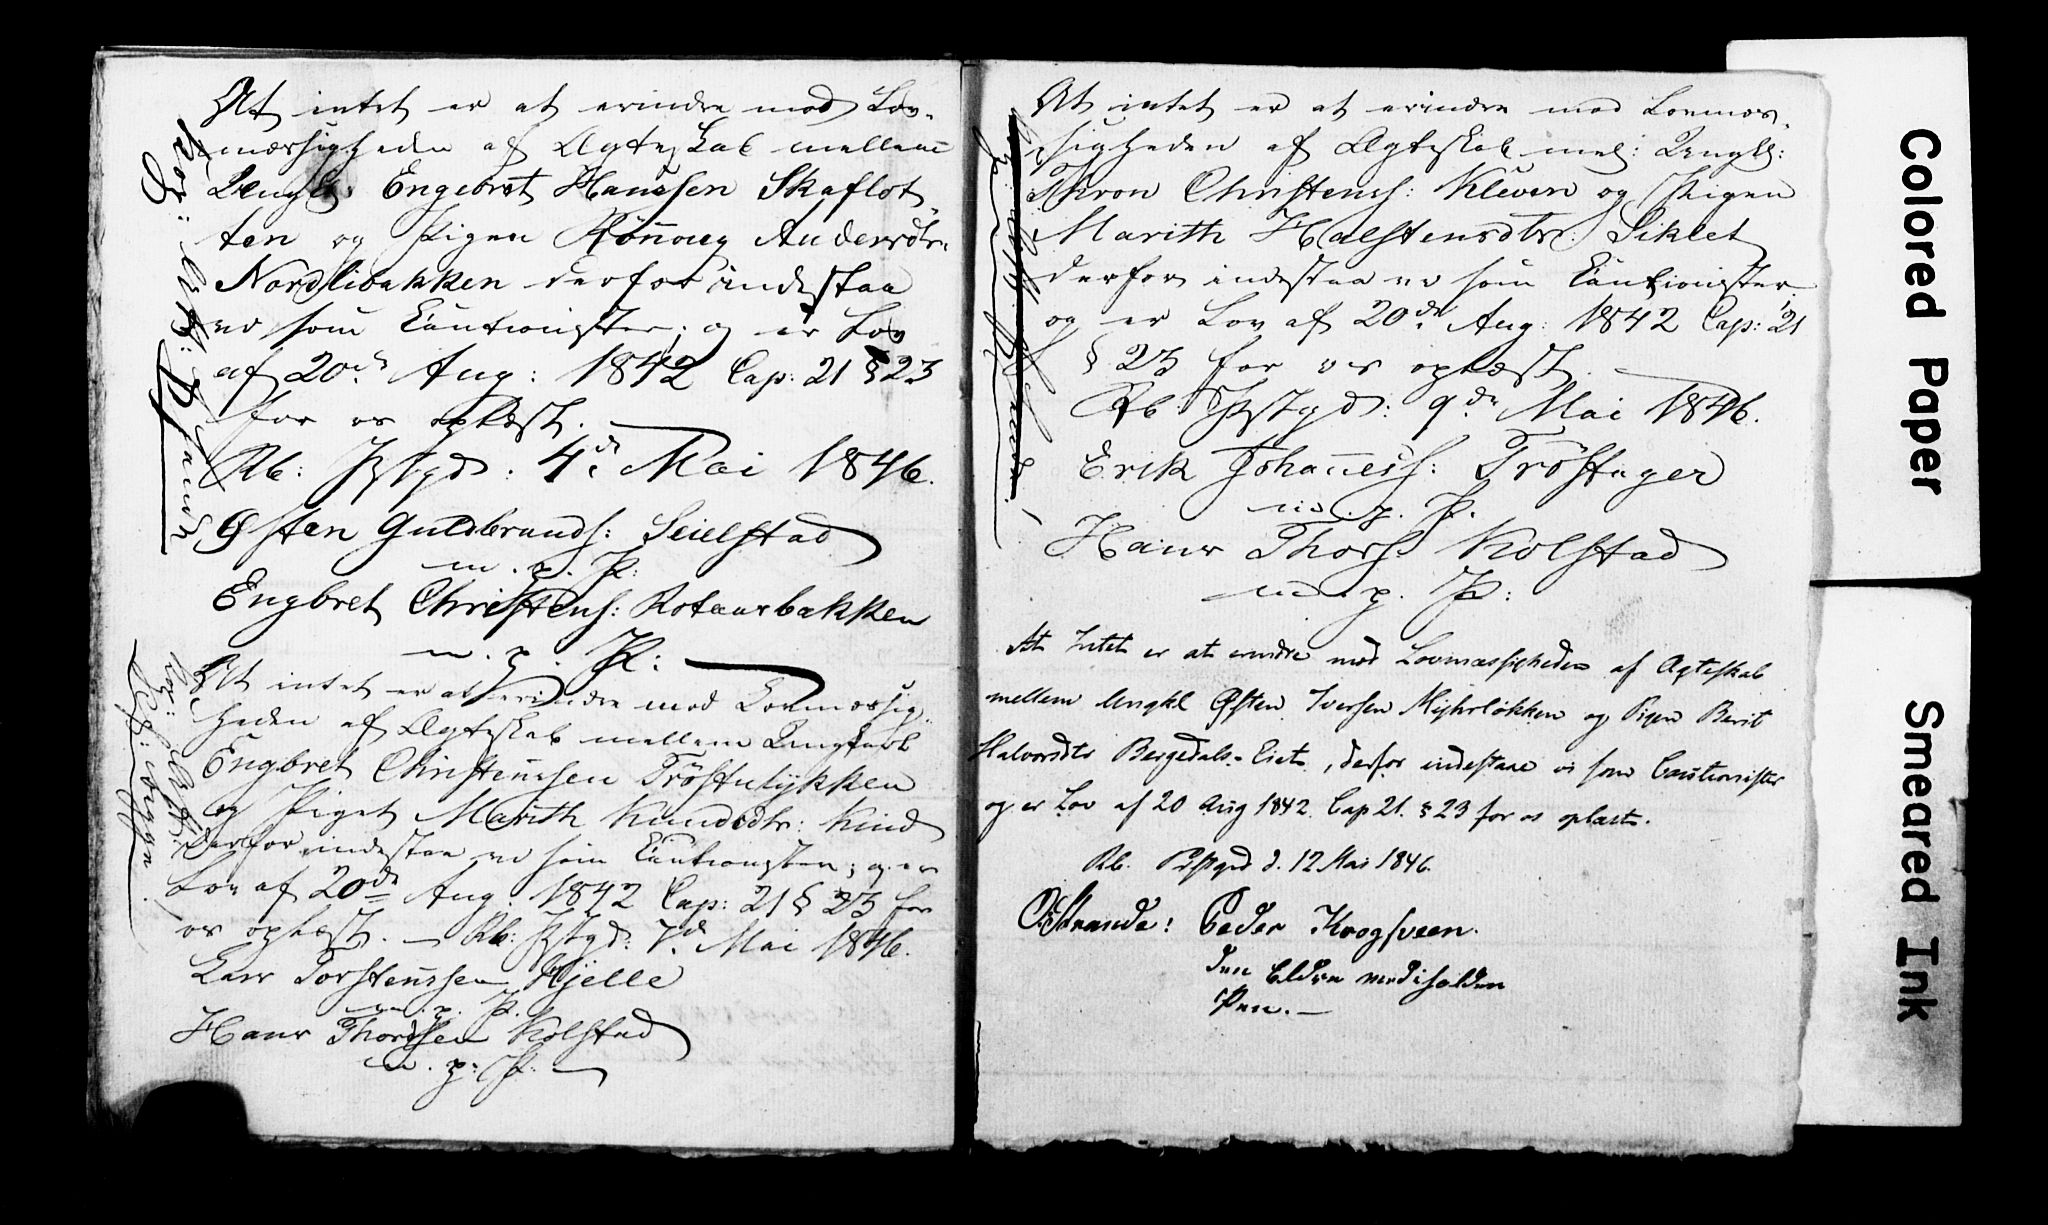 At intet er at erindre mod Lov-
mæssigheden af Ægteskab mellem
Ungk: Engebret Hanssen Skaflot-
ten og Pigen Rönnoug Andersdtr:
Nordlibakken derfor indestaa
vi som Cautionister; og er Lov
af 20de Aug: 1842 Cap: 21 § 23
for os oplæst.
Rb: Pstgd: 4de Mai 1846.
Østen Guldbrands: Seielstad
m. p. P:
Engbret Christens: Rotaasbakken
m. p. P:
At intet er at erindre mod Lovmæssig-
heden af Ægteskab mellem Ungkarl
Engbret Christenssen Tröstulykken
og Piget Marith Knudsdtr: Kind
derfor indestaa vi som Cautionister; og er
Lov af 20de Aug. 1842 Cap: 21 § 23 for
os oplæst. – Rb: Pstgd: 7de Mai 1846.
Lars Torstenssen Hjelle
m. p. P.
Hans Thordssen Kolstad
m. p: P: –
At intet er at erindre mod Lovmæs-
sigheden af Ægteskab mel: Ungk:
Thron Christens: Kleven og Pigen
Marith Halstensdtr: Siklet
derfor indestaa vi som Cautionister
og er Lov af 20de Aug: 1842 Cap: 21
§ 23 for os oplæst.
Rb Pstgd: 9de Mai 1846.
Erik Johaness: Tröstager
m. p. P.
Hans Thors: Kolstad
m. p. P:
At Intet er at erindre mod Lovmæssigheden af Ægteskab
mellem Ungkl Østen Iversen Mijhrløkken og Pigen Berit
Halvorsdtr Bergedals-Eiet, derfor indestaae vi som Cautionister
og er Lov af 20 Aug 1842. Cap 21. § 23 for os oplæst.
Rb. Præstgrd d. 12 Mai 1846.
Peder Krogsveen.
den Eldre med iholden
Pen. –
Colored Paper
Smeared Ink